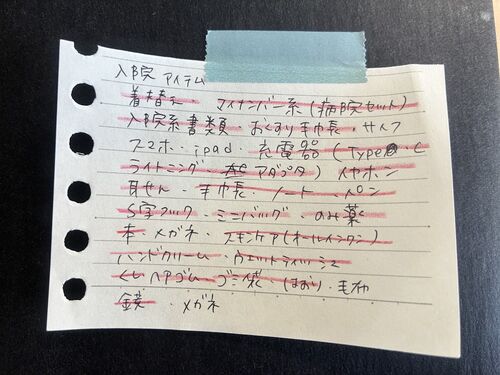 入院 アイテム
着替え・マイナンバー系(病院セット)
入院系書類・おくすり手帳・サイフ
スマホ・ipad・充電器(Type C
ライトニング・ACアダプタ)イヤホン
耳せん・手帳・ノート・ペン
S字フック・ミニバッグ・のみ薬
本・メガネ・スキンケア(オールインワン)
ハンドクリーム・ウエットティッシュ
くし ヘアゴム・ゴミ袋・はおり・毛布
・メガネ